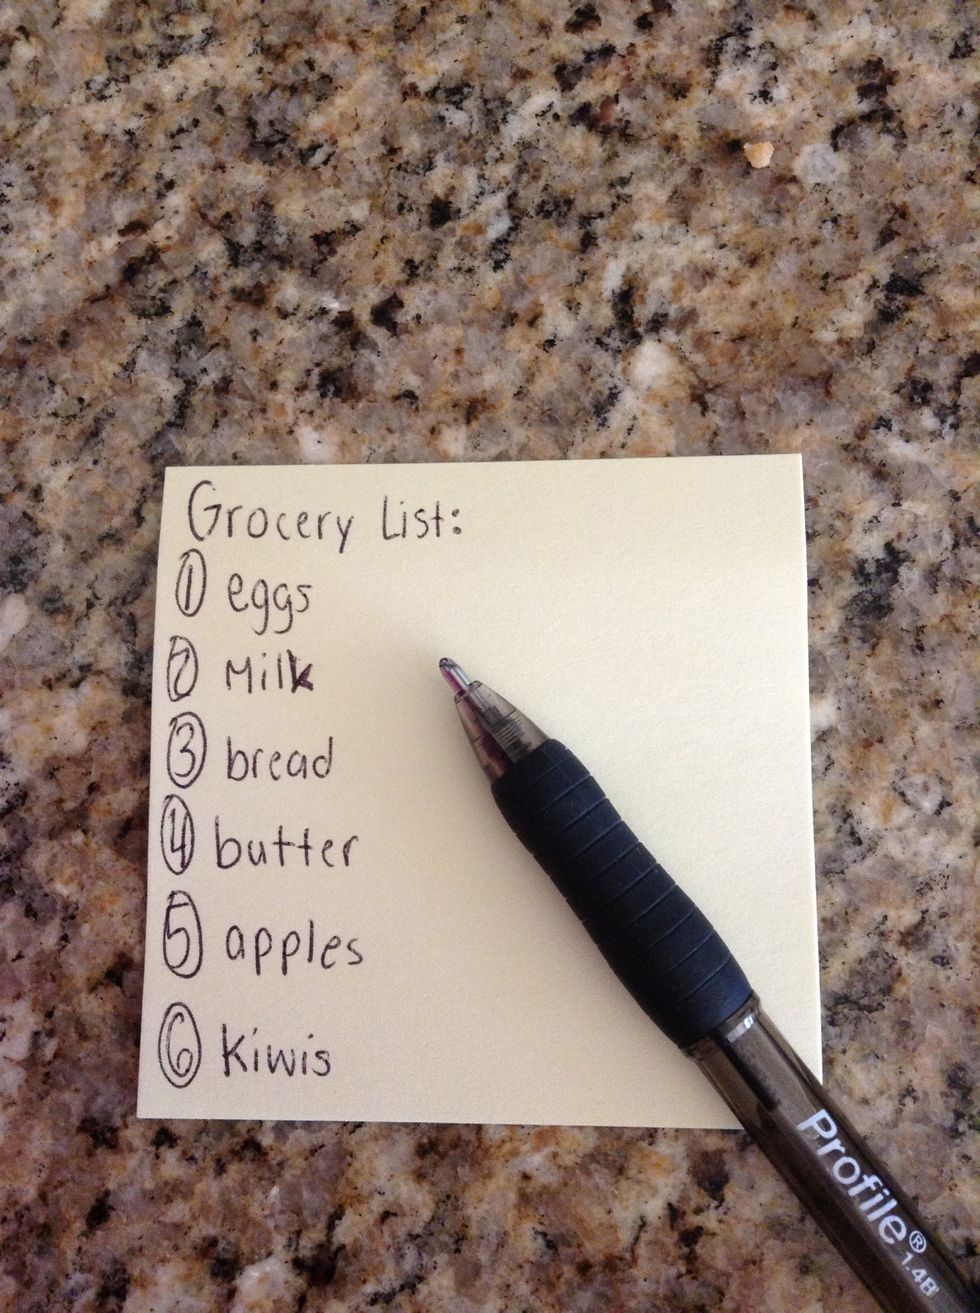 Grocery List:
① eggs
② Milk
③ bread
④ butter
⑤ apples
⑥ Kiwis
Profile®
1.4B